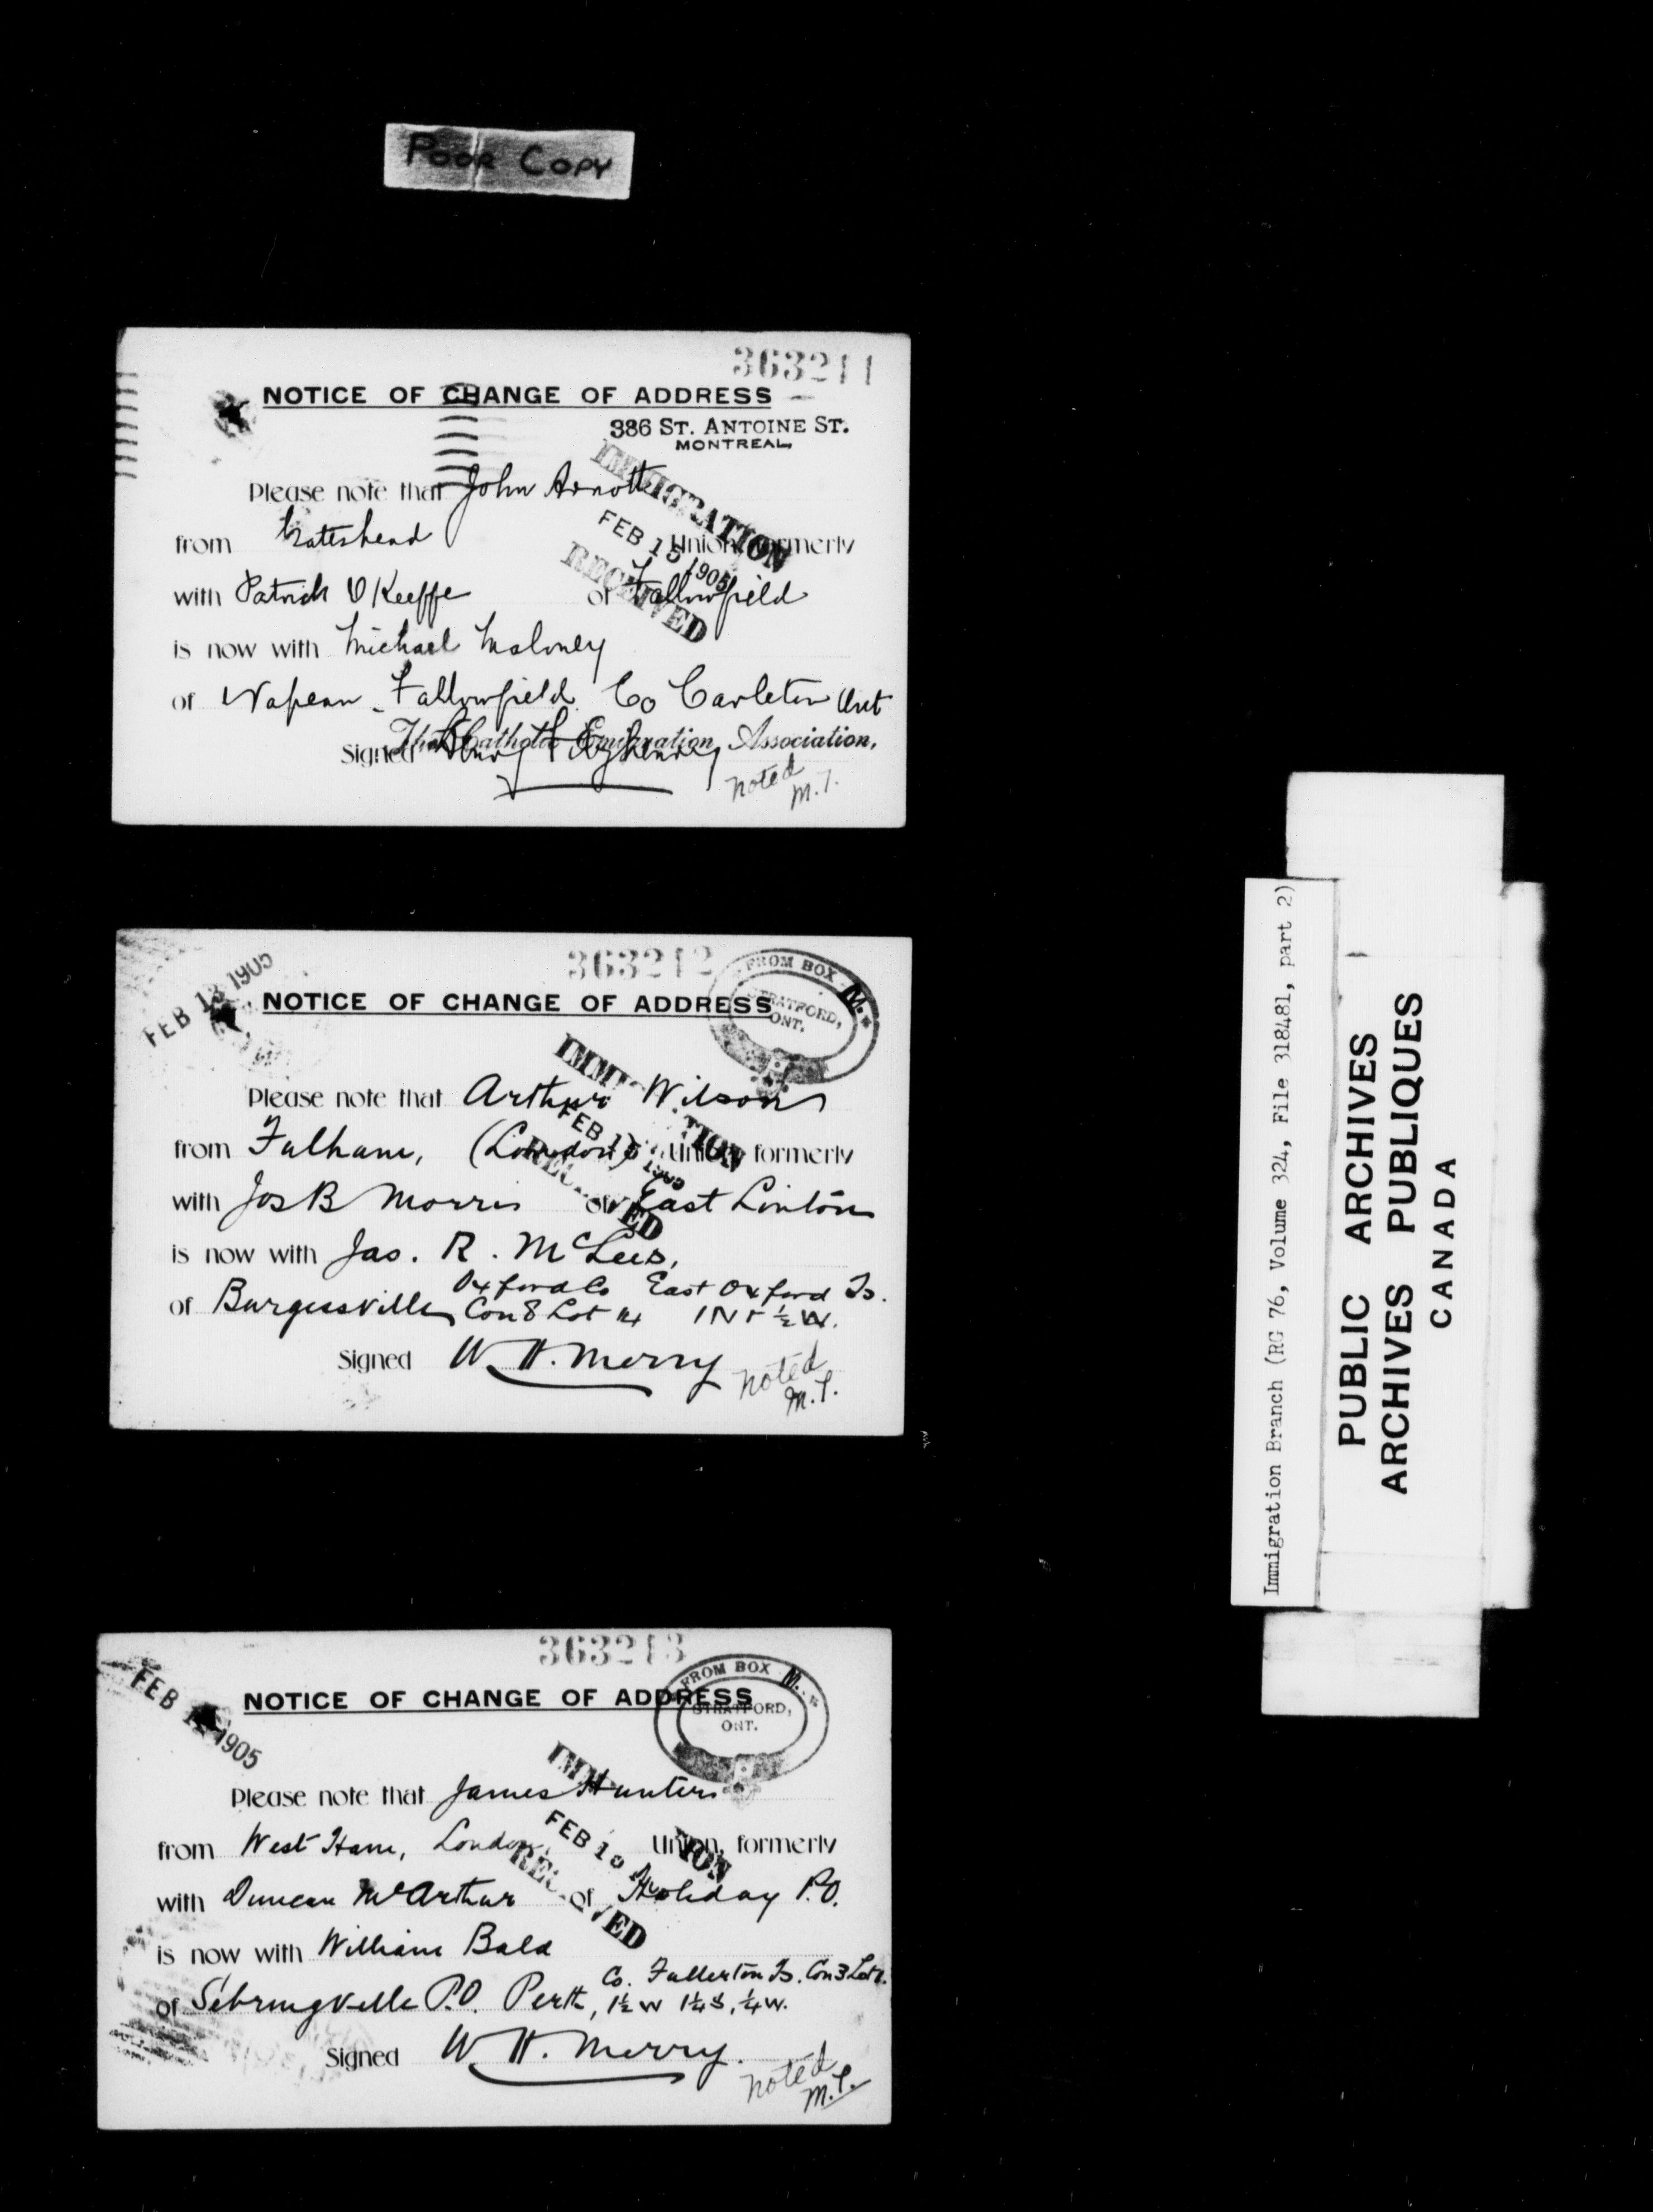 POOR COPY
363211
NOTICE OF CHANGE OF ADDRESS
386 ST. ANTOINE ST.
MONTREAL
IMMIGRATION
FEB 15 1905
RECEIVED
Please note that John Arnott
from Gateshead Union, formerly
with Patrick O'Keeffe of Fallowfield
is now with Michael Maloney
of Napean - Fallowfield Co Carleton Ont
The Catholic Emigration Association,
Signed
noted
M.T.
363212
FEB 13 1905
FROM BOX M.
STRATFORD,
ONT.
NOTICE OF CHANGE OF ADDRESS
Please note that Arthur Wilson
from Fulham, (London) Union, formerly
with Jos B Morris of East Linton
is now with Jas. R. McLees,
Oxford Co East Oxford Ts.
of Burgessville, Con 8 Lot 14 1 N + ½ W.
Signed W. H. Merry
noted
M.T.
363213
FEB 1905
FROM BOX M.
STRATFORD,
ONT.
NOTICE OF CHANGE OF ADDRESS
Please note that James Hunter
from West Ham, London Union, formerly
with Duncan McArthur of Holiday P.O.
is now with William Bald
Co. Fullerton Ts. Con 3 Lot
of Sebringville P.O. Perth, 1½ W 1¼ S, ¼ W.
Signed W. H. Merry.
noted
M.T.
Immigration Branch (RG 76, Volume 324, File 318481, part 2)
PUBLIC ARCHIVES
ARCHIVES PUBLIQUES
CANADA